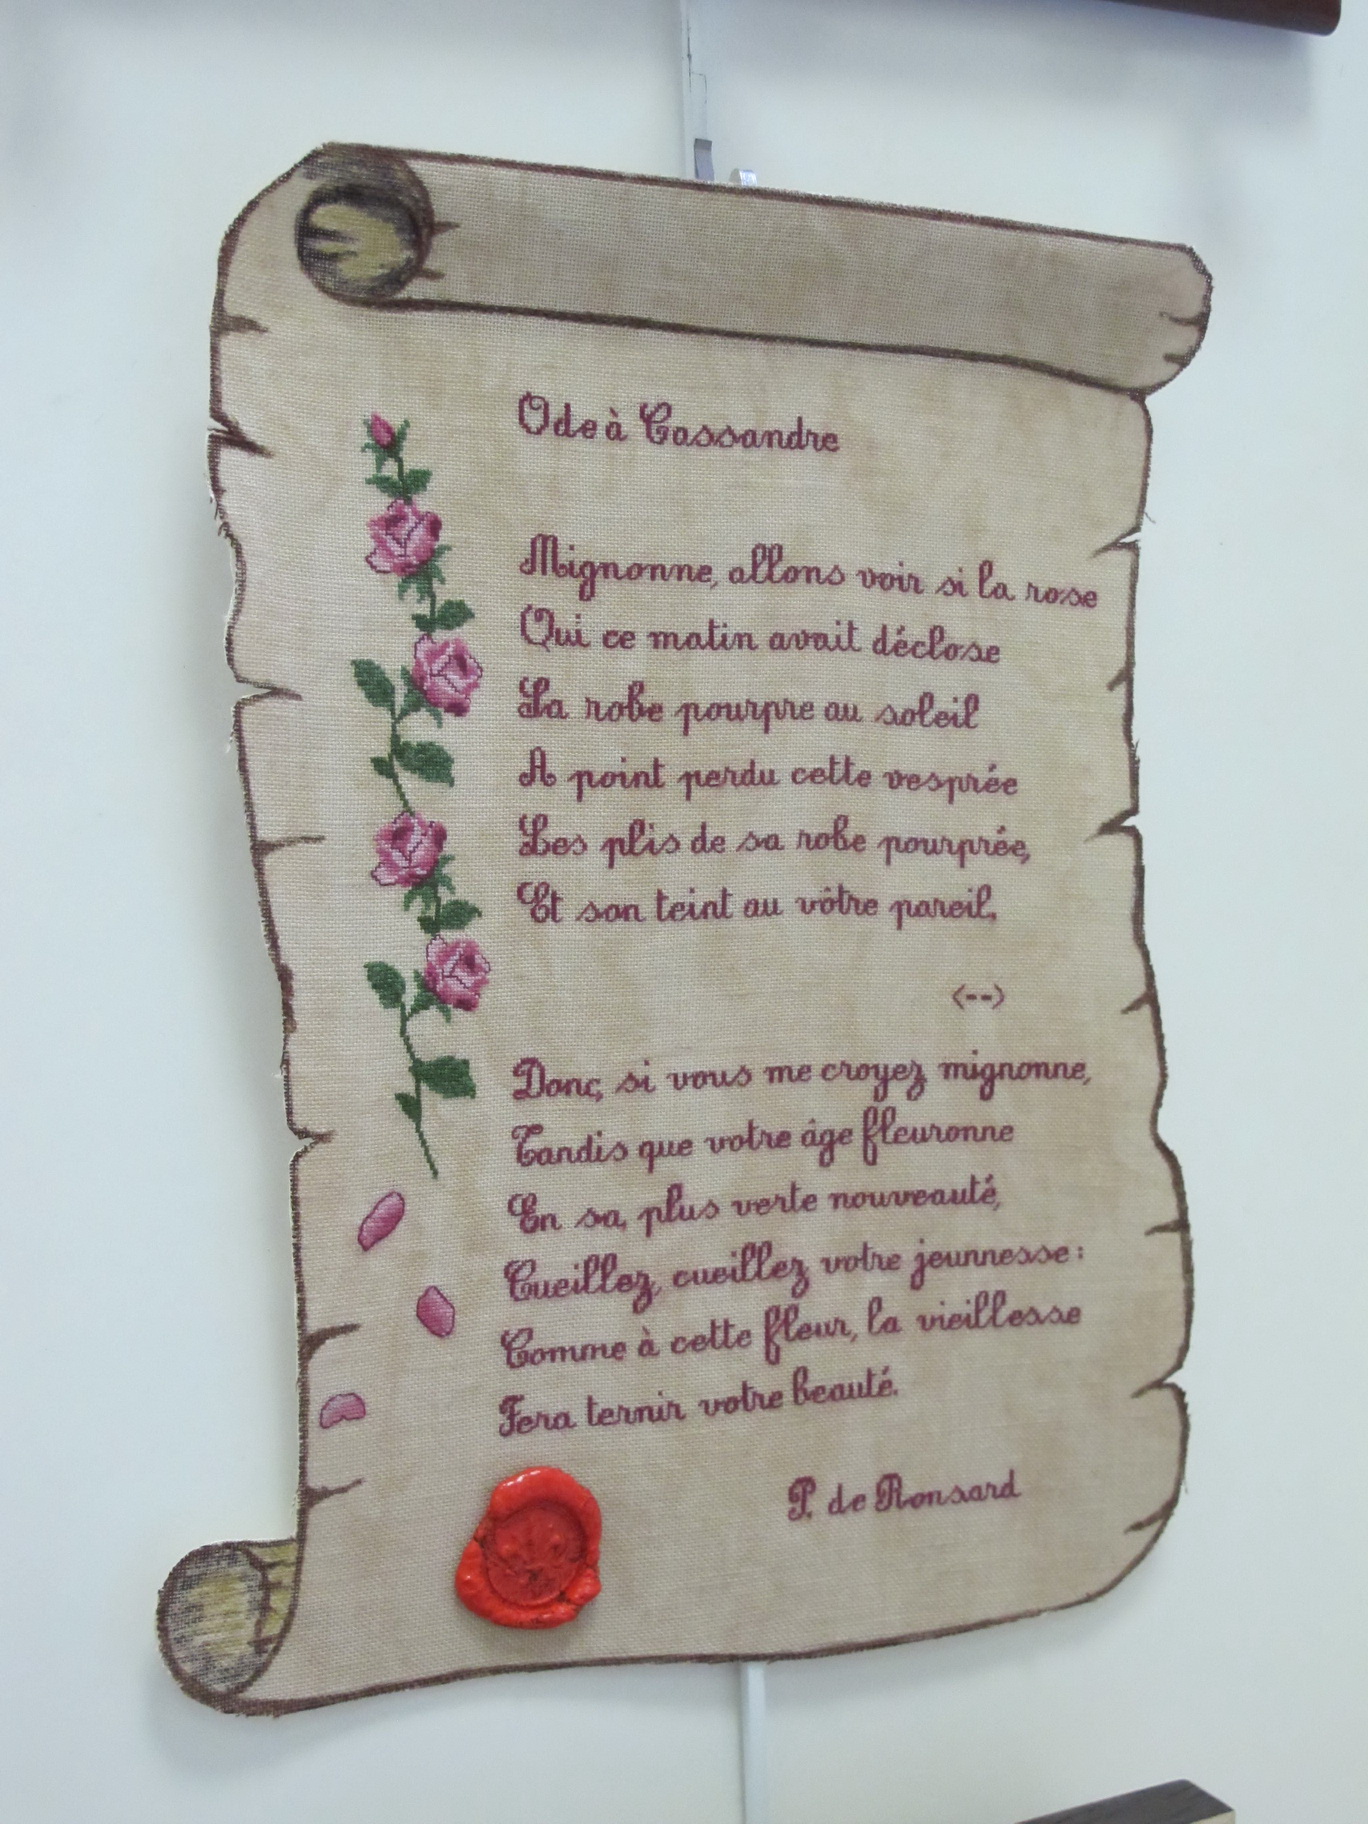 Ode à Cassandre
Mignonne, allons voir si la rose
Qui ce matin avait déclose
Sa robe pourpre au soleil
A point perdu cette vesprée
Les plis de sa robe pourprée,
Et son teint au vôtre pareil.
<-->
Donc, si vous me croyez mignonne,
Tandis que votre âge fleuronne
En sa, plus verte nouveauté,
Cueillez, cueillez votre jeunnesse :
Comme à cette fleur, la vieillesse
Fera ternir votre beauté.
P. de Ronsard